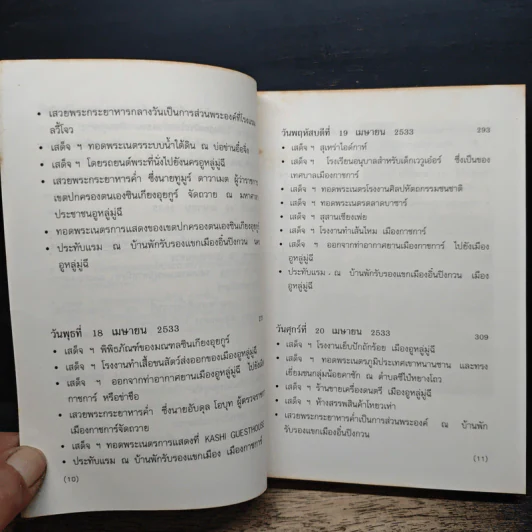 • เสวยพระกระยาหารกลางวันเป็นการส่วนพระองค์ที่โรงแรม
ลวี่โจว
• เสด็จ ฯ ทอดพระเนตรระบบน้ำใต้ดิน ณ บ่อข่านเอ๋อจิ่ง
• เสด็จ ฯ โดยรถยนต์พระที่นั่งไปยังนครอูหลู่มู่ฉี
• เสวยพระกระยาหารค่ำ ซึ่งนายทูมูร์ ดาวาเมต ผู้ว่าราชการ
เขตปกครองตนเองซินเกียงอุยกูร์ จัดถวาย ณ มหาศาลา
ประชาชนอูหลู่มู่ฉี
• ทอดพระเนตรการแสดงของเขตปกครองตนเองซินเกียงอุยกูร์
• ประทับแรม ณ บ้านพักรับรองแขกเมืองอิ๋นปิงกวน นคร
อูหลู่มู่ฉี
วันพุธที่ 18 เมษายน 2533
• เสด็จ ฯ พิพิธภัณฑ์ของมณฑลซินเกียงอุยกูร์
• เสด็จ ฯ โรงงานทำเสื้อขนสัตว์ส่งออกของเมืองอูหลู่มู่ฉี
• เสด็จ ฯ ออกจากท่าอากาศยานเมืองอูหลู่มู่ฉี ไปยังเมือง
กาชการ์ หรือซ่าซือ
• เสวยพระกระยาหารค่ำ ซึ่งนายอับดุล โอบุท ผู้ตรวจราชการ
เมืองกาชการ์จัดถวาย
• เสด็จ ฯ ทอดพระเนตรการแสดงที่ KASHI GUESTHOUSE
• ประทับแรม ณ บ้านพักรับรองแขกเมือง เมืองกาชการ์
(10)
วันพฤหัสบดีที่ 19 เมษายน 2533 293
• เสด็จ ฯ สุเหร่าไอด์กาห์
• เสด็จ ฯ โรงเรียนอนุบาลสำหรับเด็กเววูเอ๋อร์ ซึ่งเป็นของ
เทศบาลเมืองกาชการ์
• เสด็จ ฯ ทอดพระเนตรโรงงานศิลปหัตถกรรมชนชาติ
• เสด็จ ฯ ทอดพระเนตรตลาดบาซาร์
• เสด็จ ฯ สุสานเซียงเฟย
• เสด็จ ฯ โรงงานทำเส้นไหม เมืองกาชการ์
• เสด็จ ฯ ออกจากท่าอากาศยานเมืองกาชการ์ ไปยังเมือง
อูหลู่มู่ฉี
• ประทับแรม ณ บ้านพักรับรองแขกเมืองอิ๋นปิงกวน เมือง
อูหลู่มู่ฉี
วันศุกร์ที่ 20 เมษายน 2533 309
• เสด็จ ฯ โรงงานเย็บปักถักร้อย เมืองอูหลู่มู่ฉี
• เสด็จ ฯ ทอดพระเนตรภูมิประเทศเขาหนานซาน และทรง
เยี่ยมชนกลุ่มน้อยคาซัก ณ ตำบลซีไป๋หยางโกว
• เสด็จ ฯ ร้านขายเครื่องดนตรี เมืองอูหลู่มู่ฉี
• เสด็จ ฯ ห้างสรรพสินค้าโหยวเห่า
• เสวยพระกระยาหารค่ำเป็นการส่วนพระองค์ ณ บ้านพัก
รับรองแขกเมืองอิ๋นปิงกวน
(11)